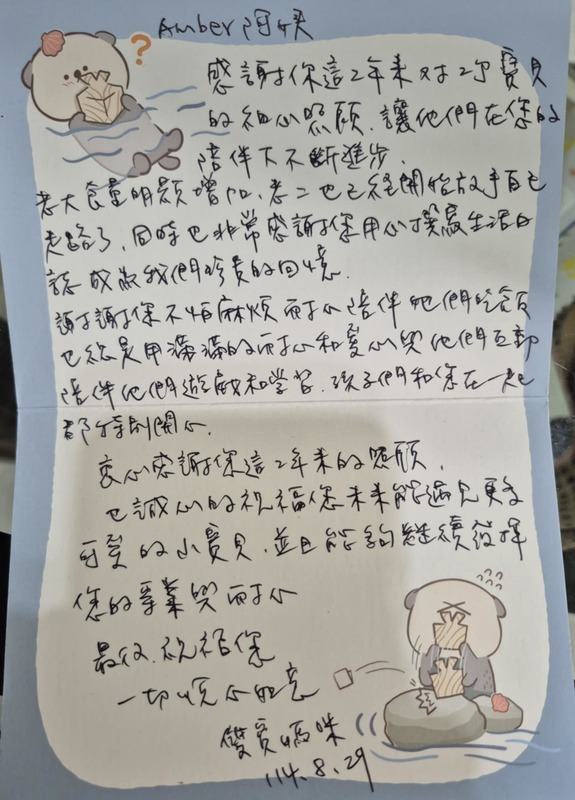 Amber 阿姨
感謝你這2年來对2寶貝
的細心照顧,讓他們在您的
陪伴下不斷進步.
老大食量明顯增加,老二也已經開始放手自己
走路了,同時也非常感謝您用心撰寫生活日
誌 成為我們珍貴的回憶.
謝謝你不怕麻煩耐心陪伴他們吃飯
也總是用滿滿的耐心和愛心與他們互動
陪伴他們遊戲和學習.孩子們和你在一起
都特別開心.
衷心感謝你這2年來的照顧,
也誠心的祝福您未來能遇見更多
可愛的小寶貝,並且能夠繼續發揮
您的專業與耐心
最後,祝福你
一切順心如意
雙寶媽咪
114.8.29